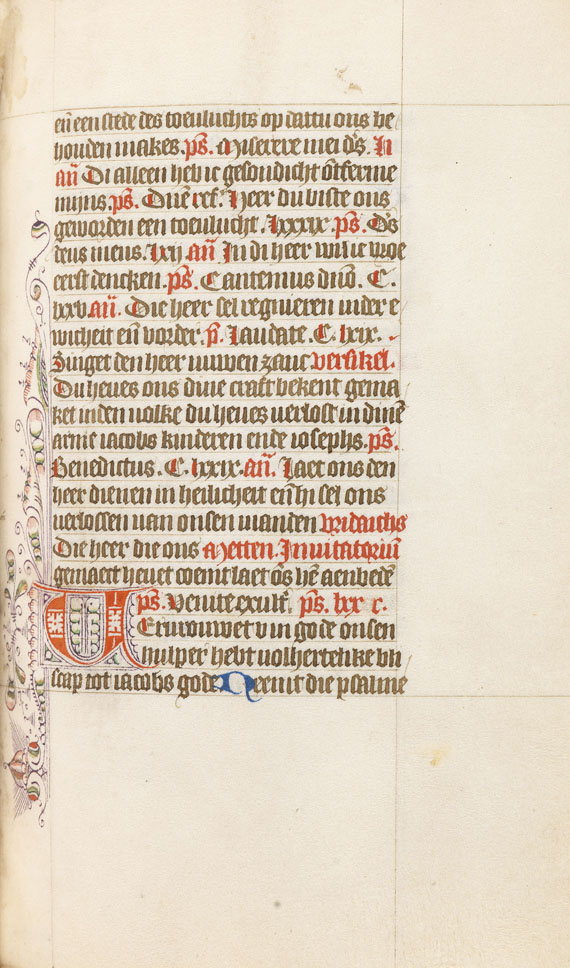 eñ een stede des toeuluchts op dattu ons be
houden makes. ps. Miserere mei ds̄. In
añ Di alleen heb ic gesondicht ōtferme
mijns. ps. Dn̄e ref. Heer du biste ons
geworden een toeulucht. lxxxix. ps. Ds̄
deus meus. lxij añ In di heer wil ic vroe
eerst dencken. ps. Cantemus dn̄o. C.
lxxv. añ. Die heer sel regnieren inder e
wicheit eñ vorder. p̄. Laudate. C. lxix.
Zinget den heer nuwen zanc versikel.
Du heues ons dine craft bekent gema
ket inden uolke du heues uerlost in dinē
arme iacobs kinderen ende iosephs. ps.
Benedictus. C. lxxix. añ. Laet ons den
heer dienen in heilicheit eñ hi sel ons
uerlossen uan onsen uianden vridaichs
Die heer die ons Metten. Inuitatoriū
gemaect heuet coemt laet ōs hē aenbedē
ps. Venite exult̄. ps. lxx c.
Ervrouwet v in gode onsen
hulper hebt uolhertelike bli
scap tot iacobs gode Neemt die psalme